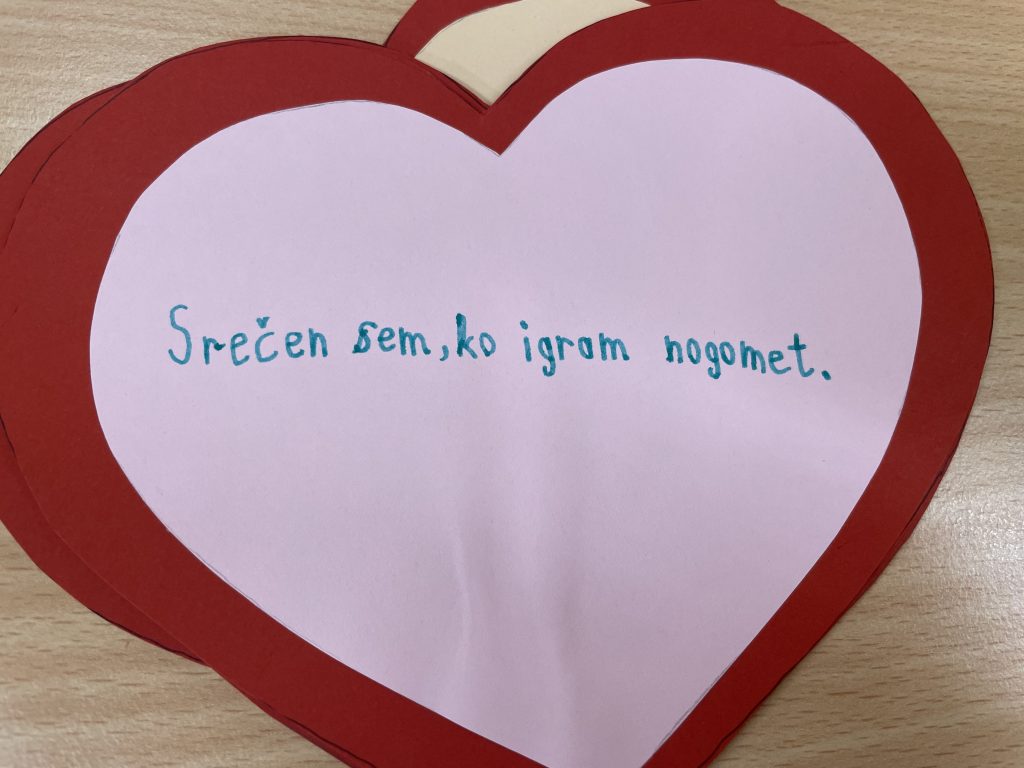 Srečen sem, ko igram nogomet.